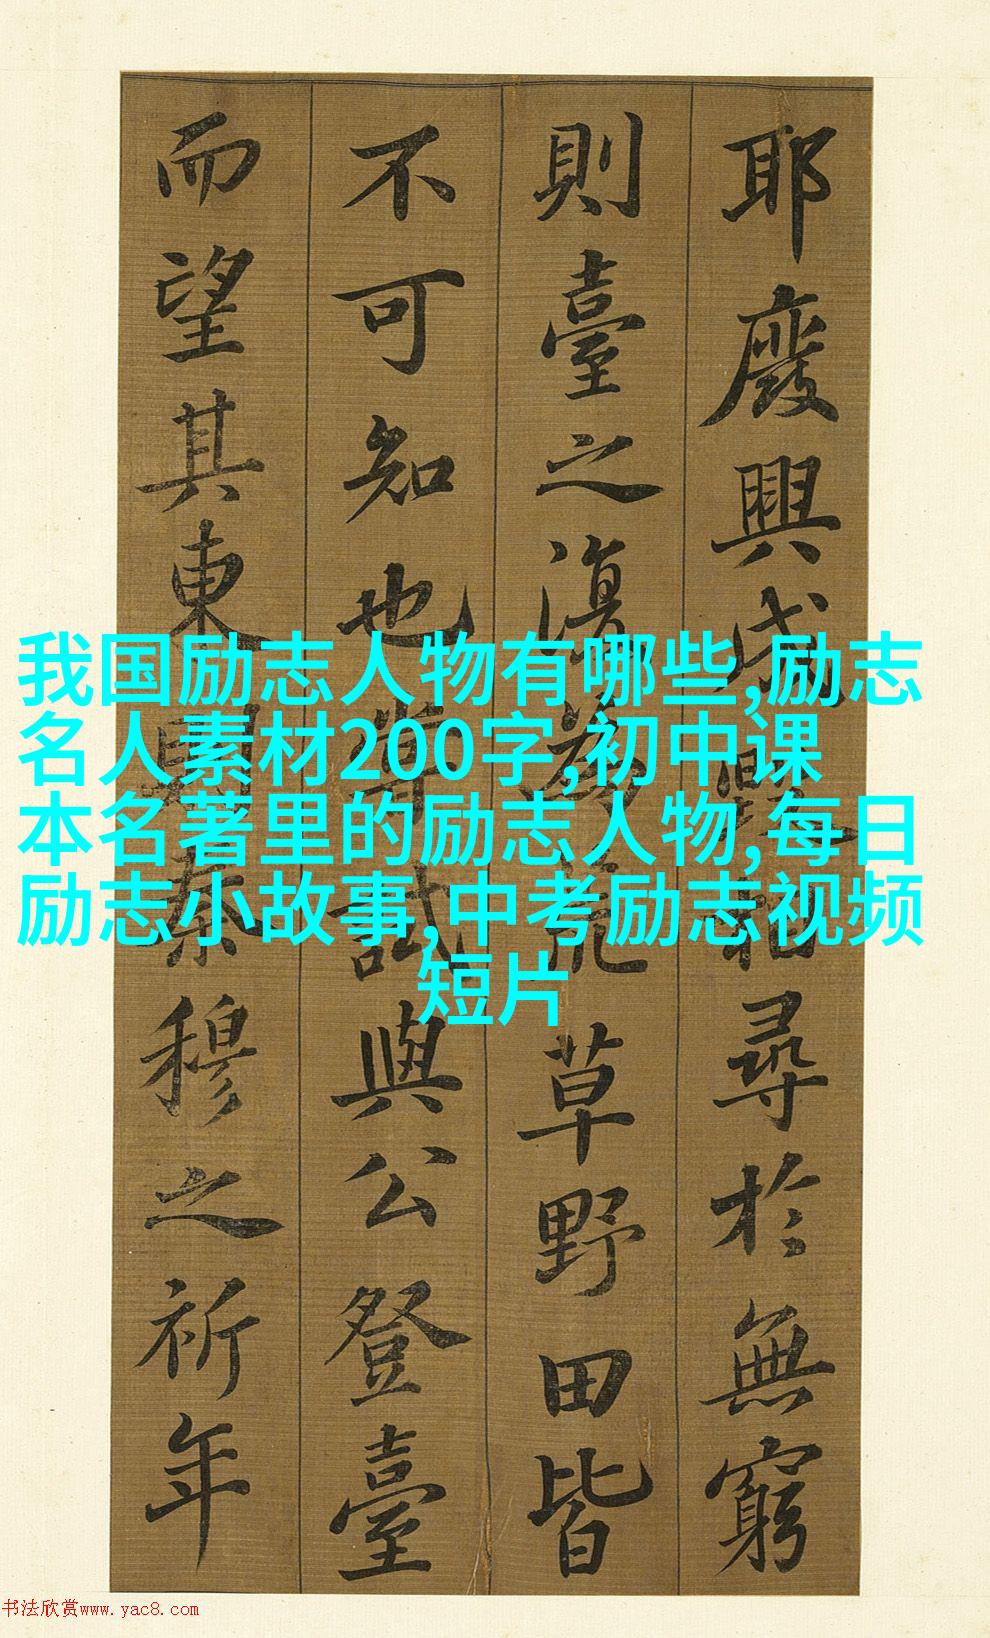 耶廢興成毀相尋於無窮
則臺之復為荒草野田皆
不可知也嘗試與公登臺
而望其東則秦穆之祈年
我国励志人物有哪些,励志
名人素材200字,初中课
本名著里的励志人物,每日
励志小故事,中考励志视频
短片
书法欣赏www.yac8.com